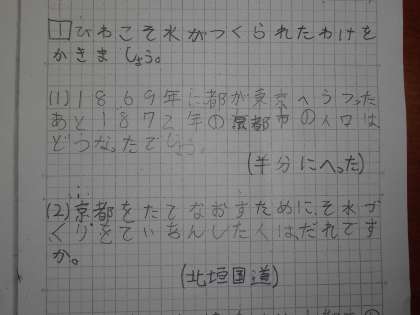 1 びわこそ水がつくられたわけを
かきましょう。
(1) 1869年に都が東京へうつった
あと1872年の京都市の人口は
どうなったでしょう。
(半分にへった)
(2) 京都をたてなおすために、そ水づ
くりをていあんした人は、だれです
か。
(北垣国道)